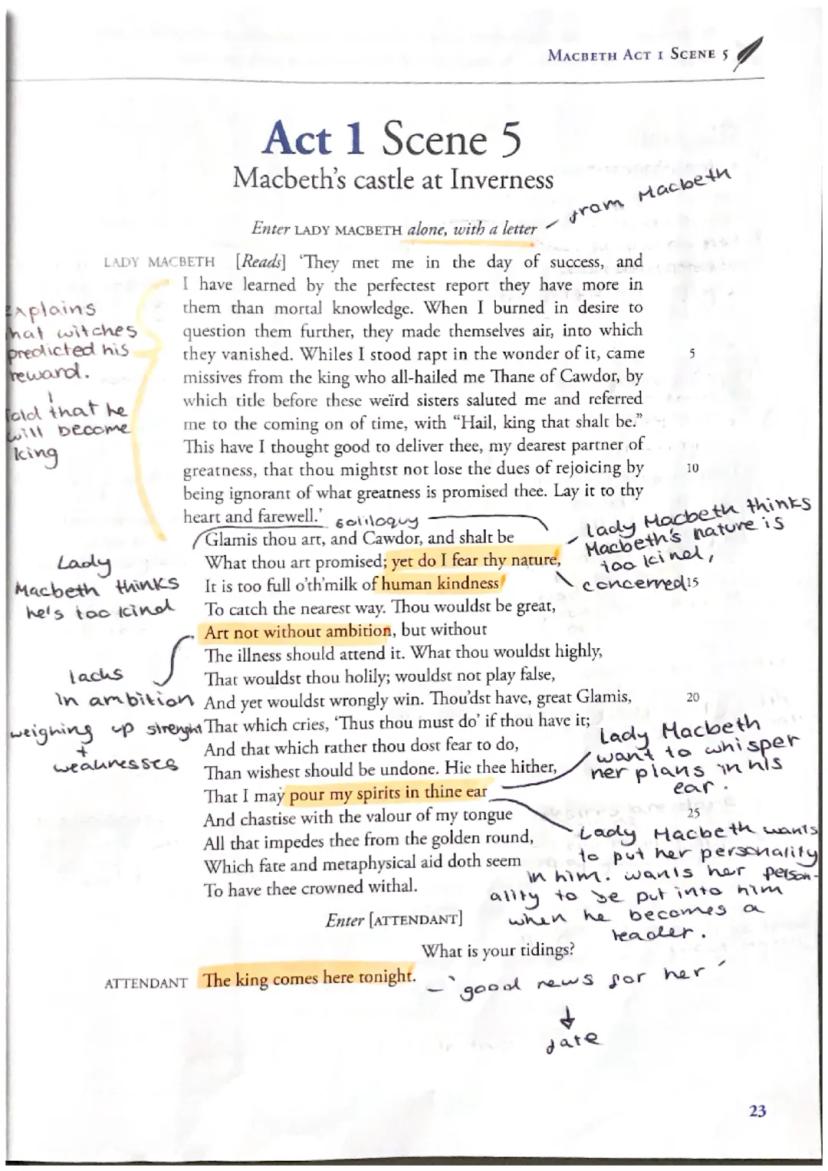 MACBETH ACT 1 SCENE 5
Act 1 Scene 5
Macbeth's castle at Inverness
from Macbeth
Enter LADY MACBETH alone, with a letter
LADY MACBETH [Reads] 'They met me in the day of success, and
I have learned by the perfectest report they have more in
them than mortal knowledge. When I burned in desire to
question them further, they made themselves air, into which
they vanished. Whiles I stood rapt in the wonder of it, came 5
missives from the king who all-hailed me Thane of Cawdor, by
which title before these weïrd sisters saluted me and referred
me to the coming on of time, with "Hail, king that shalt be."
This have I thought good to deliver thee, my dearest partner of
greatness, that thou mightst not lose the dues of rejoicing by 10
being ignorant of what greatness is promised thee. Lay it to thy
heart and farewell.'
Explains
that witches
predicted his
reward.
told that he
will become
king
soliloquy
Glamis thou art, and Cawdor, and shalt be
What thou art promised; yet do I fear thy nature,
It is too full o'th'milk of human kindness 15
To catch the nearest way. Thou wouldst be great,
Art not without ambition, but without
The illness should attend it. What thou wouldst highly,
That wouldst thou holily; wouldst not play false,
And yet wouldst wrongly win. Thou'dst have, great Glamis, 20
That which cries, 'Thus thou must do' if thou have it;
And that which rather thou dost fear to do,
Than wishest should be undone. Hie thee hither,
That I may pour my spirits in thine ear
And chastise with the valour of my tongue 25
All that impedes thee from the golden round,
Which fate and metaphysical aid doth seem
To have thee crowned withal.
Lady Macbeth thinks
Macbeth's nature is
too kind,
concerned
Lady
Macbeth thinks
he's too kind
lacks
in ambition
weighing up strenght
+
weaknesses
Lady Macbeth
want to whisper
her plans in his
ear.
Lady Macbeth wants
to put her personality
in him. wants her person-
ality to be put into him
when he becomes a
leader.
Enter [ATTENDANT]
What is your tidings?
ATTENDANT The king comes here tonight.
– 'good news for her'
fate
23